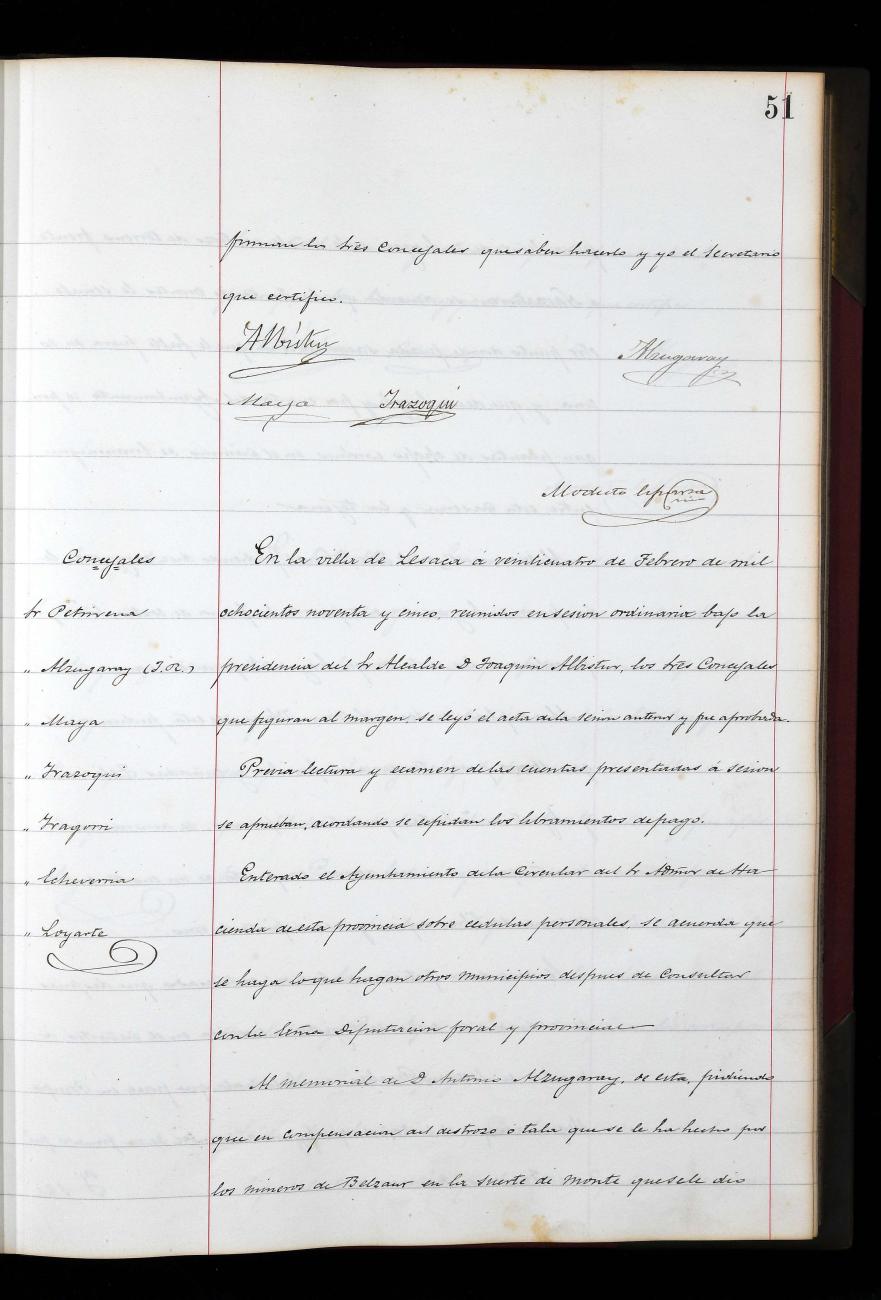 51
firman los tres Concejales que saben hacerlo y yo el Secretario
que certifico.
Albistur
Alzugaray
Maya Irazoqui
Modesto Esparza
Concejales
Sr Petrirena
" Alzugaray (J. R.)
" Maya
" Irazoqui
" Iragorri
" Echeverria
" Loyarte
En la villa de Lesaca á veinticuatro de Febrero de mil
ochocientos noventa y cinco, reunidos en sesion ordinaria bajo la
presidencia del Sr Alcalde D Joaquin Albistur, los tres Concejales
que figuran al margen, se leyó el acta de la sesion anterior y fue aprobada.
Previa lectura y ecsamen de las cuentas presentadas á sesion
se aprueban, acordando se espidan los libramientos de pago.
Enterado el Ayuntamiento de la Circular del Sr Admor de Ha-
cienda de esta provincia sobre cedulas personales, se acuerda que
se haga lo que hagan otros municipios despues de Consultar
con la Ecma Diputacion foral y provincial
Al memorial de D Antonio Alzugaray, de esta, pidiendo
que en compensacion del destrozo ó tala que se le ha hecho por
los mineros de Belzaur en la suerte de monte que se le dio